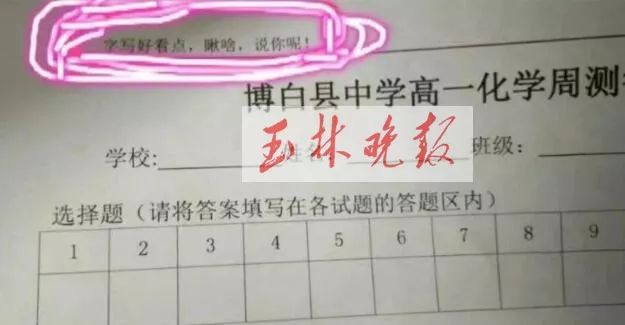 字写好看点，瞅啥，说你呢！
博白县中学高一化学周测
玉林晚报
学校: 姓名: 班级:
选择题（请将答案填写在各试题的答题区内）
1 2 3 4 5 6 7 8 9